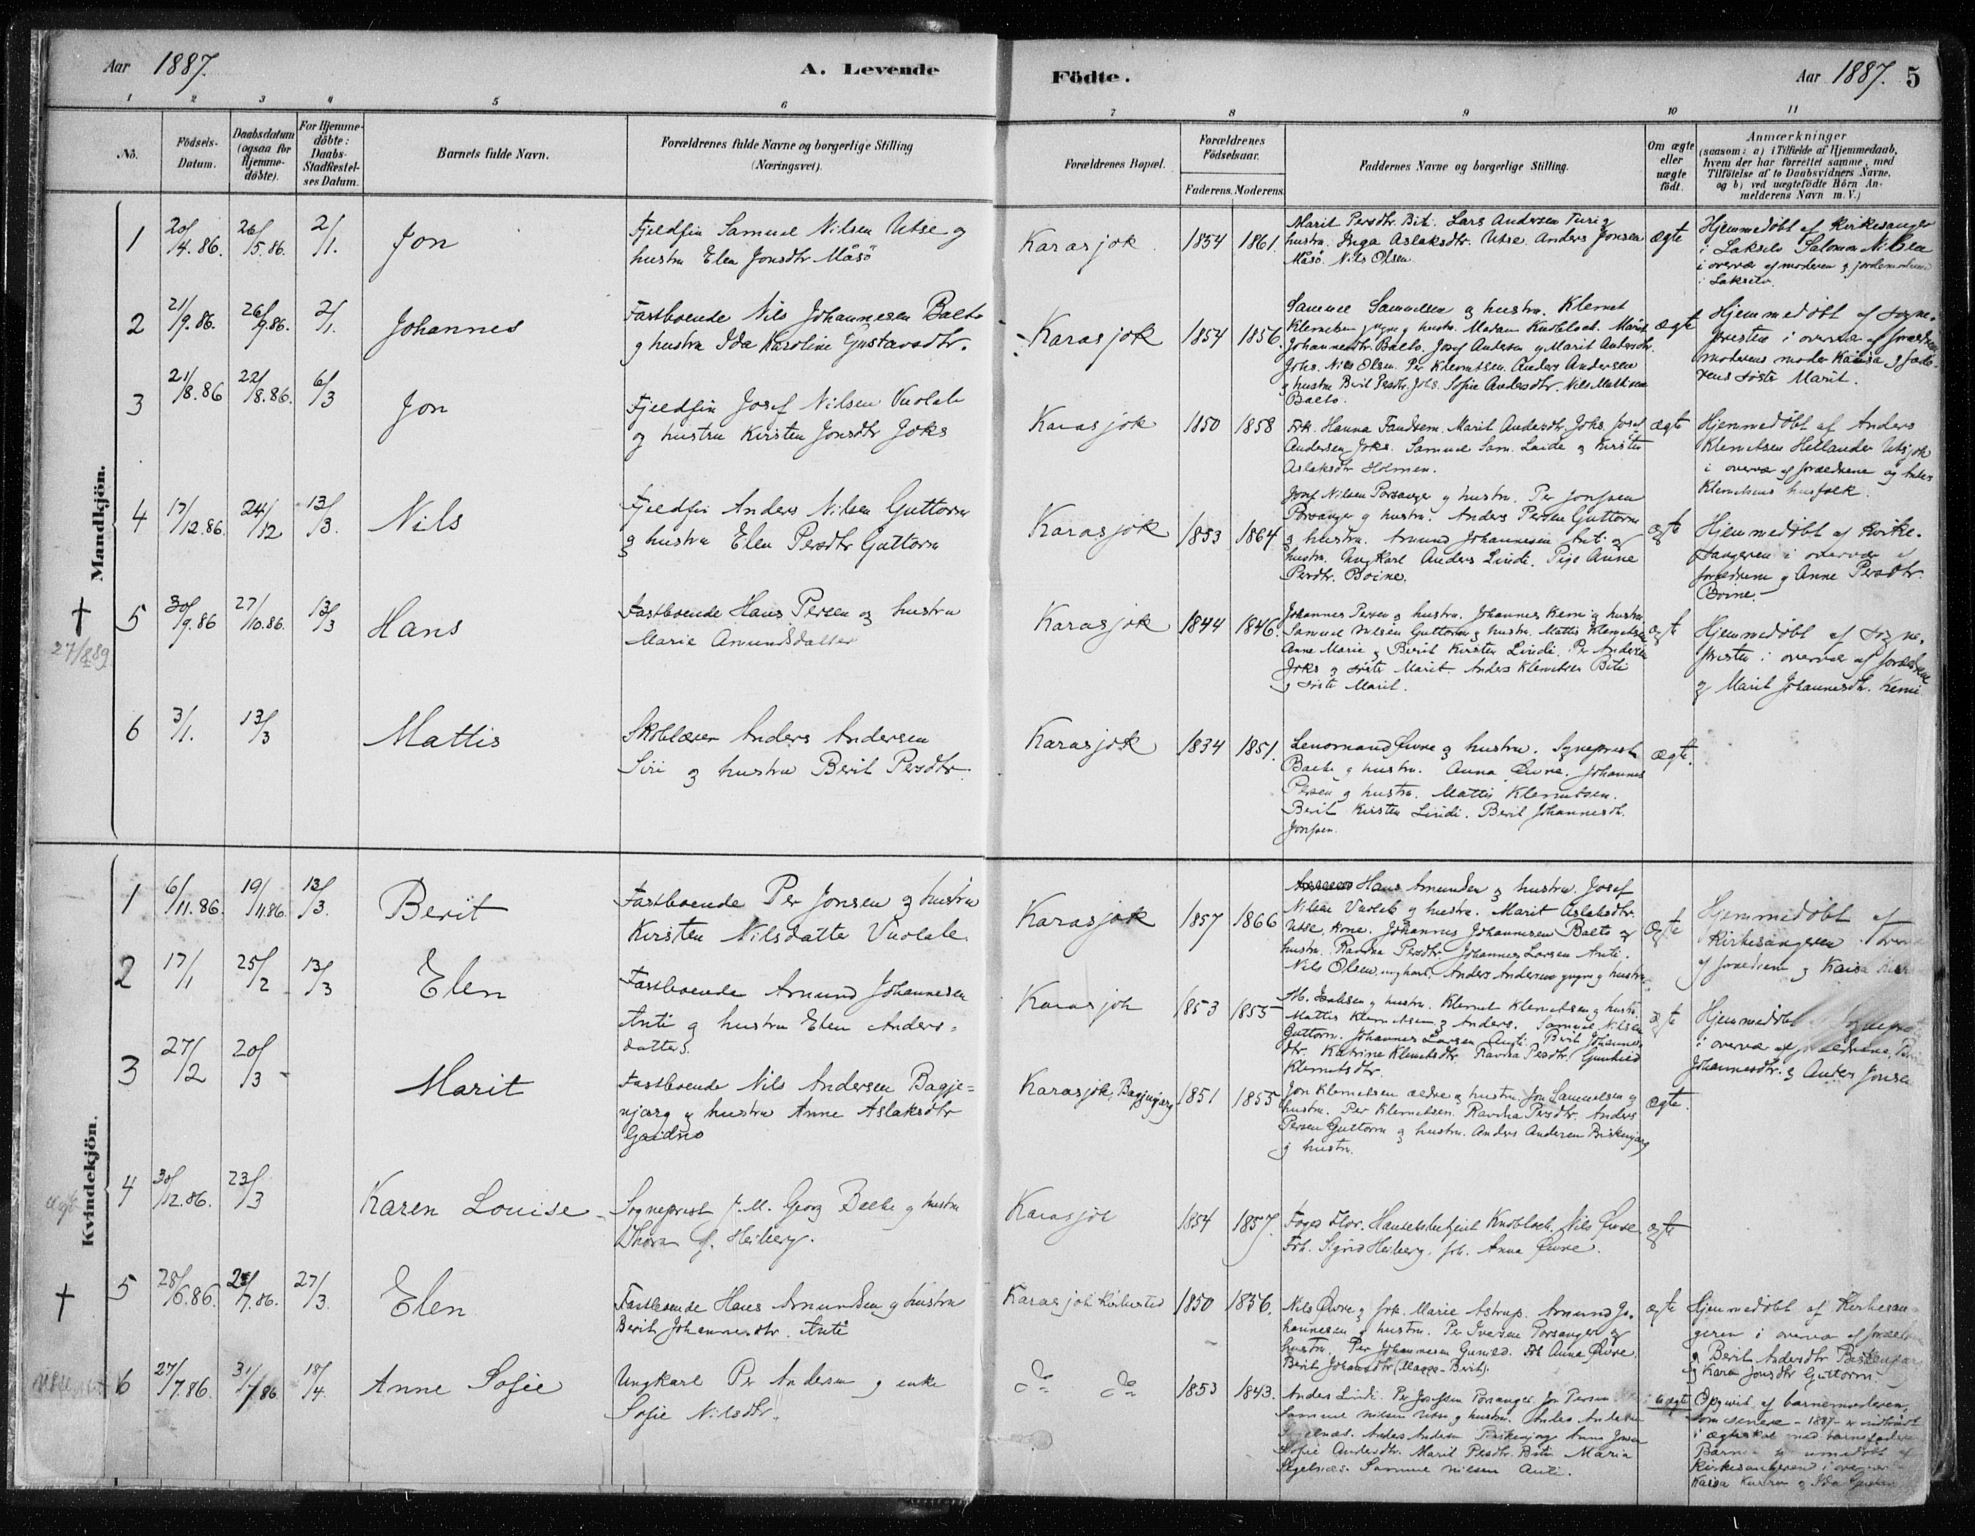 Aar 1887. A. Levende Födte. Aar 1887. 5
1 2 3 4 5 6 7 8 9 10 11
No. Födsels-Datum. Daabsdatum (ogsaa for Hjemmedöbte). For Hjemmedöbte: Daabs-Stadfæstelses Datum. Barnets fulde Navn. Forældrenes fulde Navne og borgerlige Stilling (Næringsvei). Forældrenes Bopæl. Forældrenes Födselsaar. Faderens. Moderens. Faddernes Navne og borgerlige Stilling. Om ægte eller uægte födt. Anmærkninger (saasom: a) i Tilfælde af Hjemmedaab, hvem der har forrettet samme, med Tilföielse af to Daabsvidners Navne, og b) ved uægtefödte Börn Anmelderens Navn m. V.)
Mandkjön.
1 20/4.86. 26/5.86. 2/1. Jon
Fjeldfin Samuel Nilsen Utse og
hustru Elen Jonsdtr Måsö
Karasjok. 1854 1861
Marit Persdtr. Biti. Lars Andersen Turi og
hustru. Inga Aslaksdtr. Utse. Anders Jonsen
Måsö. Nils Olsen
ægte
Hjemmedøbt af Kirkesanger
i Lakselv Salomon Nilsen
i overvær af moderen og jordemoderen
i Lakselv.
2 21/9.86. 26/9.86. 2/1. Johannes
Fastboende Nils Johannesen Balto
og hustru Ida Karoline Gustavsdtr.
Karasjok 1854 1856.
Samuel Samuelsen og hustru. Klemet
Klemetsen yngre og hustr. Madam Knobloch. Marit
Johannesdtr. Balto. Josef Andersen og Marit Andersdtr.
Joks. Nils Olsen. Per Klemetsen. Anders Andersen
og hustru Berit Persdtr. Joks. Sofie Andersdtr. Nils Mathisen
Balto.
ægte
Hjemmedøbt af sogne-
presten i overvær af forældrene
moderens moder Kaisa og fade-
rens søster Marit.
3 21/8.86 22/8.86. 6/3 Jon
Fjeldfin Josef Nilsen Vuolab
og hustru Kirsten Jonsdtr Joks
Karasjok 1850 1858
Frk. Hanna Fandrem. Marit Andersdtr. Joks. Josef
Andersen Joks. Samuel Sam. Lindi og Kirsten
Aslaksdtr Holmen.
ægte
Hjemmedøbt af Anders
Klemetsen Hellander Utsjok
i overvær af forældrene og Anders
Klemetsens husfolk.
4 17/12.86. 24/12 13/3. Nils
Fjeldfin Anders Nilsen Guttorm
og hustru Elen Persdtr Guttorm
Karasjok 1853 1864
Josef Nilsen Porsanger og hustru. Per Jonsen
Porsanger og hustru. Anders Persen Guttorm
og hustru. Amund Johannesen Anti og
hustru. Ungkarl Anders Lindi. Pige Anne
Persdtr. Boine.
ægte
Hjemmedøbt af Kirke-
sangeren i overvær af
forældrene og Anne Persdtr.
Boine.
† 27/8 89
5 30/9.86 27/10.86. 13/3 Hans
Fastboende Hans Persen og hustru
Marie Amundsdatter
Karasjok 1844 1846.
Johannes Persen og hustru. Johannes Kemi og hustru
Samuel Nilsen Guttorm og hustru. Mattis Klemetsen
Anne Marie og Berit Kirsten Lindi. Per Andersen
Joks og søster Marit. Anders Klemetsen Biti
og søster Marit.
ægte
Hjemmedøbt af sogne-
prester i overvær af forældrene
og Marit Johannesdtr. Kemi
6 3/1. 13/3 Mattis
Skolelærer Anders Andersen
Siri og hustru Berit Persdtr
Karasjok 1834 1851.
Lensmand Øvre og hustru. Sogneprest
Balke og hustru. Anna Øvre. Johannes
Persen og hustru. Mattis Klemetsen.
Berit Kirsten Lindi. Berit Johannesdtr.
Jonsen.
ægte.
Kvindekjön.
1 6/11.86. 19/11.86. 13/3. Berit
Fastboende Per Jonsen og hustru
Kirsten Nilsdatter Vuolab
Karasjok 1857 1866
Hans Amundsen og hustru. Josef
Nilsen Vuolab og hustru. Marit Aslaksdtr.
Utse, kone. Johannes Johannesen Balto og
hustru. Ravna Persdtr. Johannes Larsen Anti.
Nils Olsen, ungkarl. Anders Andersen yngre og hustru.
ægte
Hjemmedøbt af
Kirkesangeren
af forældrene og Kaisa
2 17/1 25/2 13/3 Elen
Fastboende Amund Johannesen
Anti og hustru Elen Anders-
datter.
Karasjok 1853 1855
og hustru. Klemet Klemetsen og hustr.
Mattis Klemetsen og Anders. Samuel Nilsen
Guttorm. Johannes Larsen Anti. Berit Johannes-
dtr. Katrine Klemetsdtr. Ravna Persdtr. Gunhild
Klemetsdtr.
ægte
Hjemmedøbt sognepr.
i overvær af forældrene,
Johannesdtr. og Anders Jonsen
3 27/2 20/3 Marit
Fastboende Nils Andersen Bagje-
njarg og hustru Anne Aslaksdtr
Gaidno
Karasjok, Bagjenjarg 1851 1855
Jon Klemetsen ældre og hustru. Jon Samuelsen og
hustru. Per Klemetsen. Ravna Persdtr. Anders
Persen Guttorm og hustru. Anders Andersen Biskenjarg
og hustru.
ægte.
4 30/12.86. 23/3 Karen Louise
Sogneprest J. M. Georg Balke og hustru
Thora f. Heiberg.
Karasjok 1854 1857.
Foged Hor. Handelsbetjent Knobloch. Nils Øvre
Frk. Sigrid Heiberg. frk. Anna Øvre.
ægte
†
5 28/6.86. 7.86. 27/3. Elen
Fastboende Hans Amundsen og hustru
Berit Johannesdtr. Anti
Karasjok Kirkested 1850 1856.
Nils Øvre og frk. Marie Astrup. Amund Jo-
hannesen og hustru. Per Iversen Porsanger og
hustru. Per Johannesen Gunild. Frk Anna Øvre.
Berit Johansdtr
ægte
Hjemmedøbt af Kirkesan-
geren i overvær af forældrene
og Berit Andersdtr Biskenjarg
og Kara Jonsdtr Guttorm
6 27/7.86. 31/7.86 18/4. Anne Sofie
Ungkarl Per Andersen og enke
Sofie Nilsdtr.
Do Do 1853 1843.
Anders Lindi. Per Josefsen Porsanger. Jon Persen
Samuel Nilsen Utse og hustru. Anders Andersen
Anders Andersen Biskenjarg Anne Jonsen
Sofie Andersdtr. Marit Persdtr Biti Maria
Segelnæs. Samuel Nilsen Anti.
uægte
Opgivet af barnemoderen,
som senere - 1887 - er indtraadt
i ægteskab med barnefaderen
Barnet hjemmedøbt af
Kirkesangeren i overvær af
Kaisa og Ida